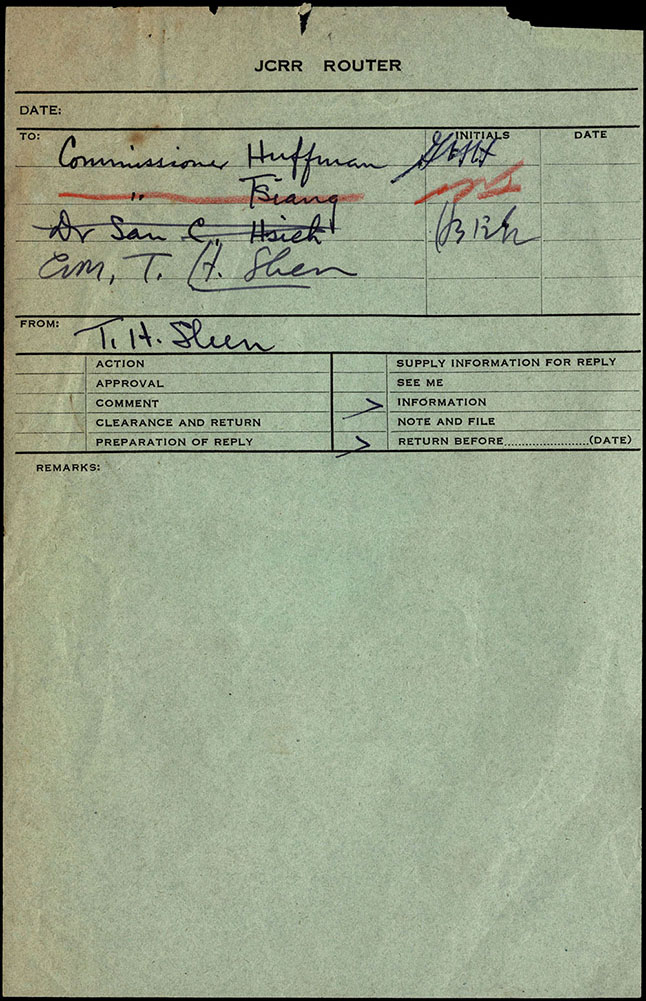 JCRR ROUTER
DATE:
TO: INITIALS DATE
Commissioner Huffman
" Tsiang
Dr San C. Hsieh
T. H. Shen
FROM: T. H. Shen
ACTION SUPPLY INFORMATION FOR REPLY
APPROVAL SEE ME
COMMENT INFORMATION
CLEARANCE AND RETURN NOTE AND FILE
PREPARATION OF REPLY RETURN BEFORE........................(DATE)
REMARKS: